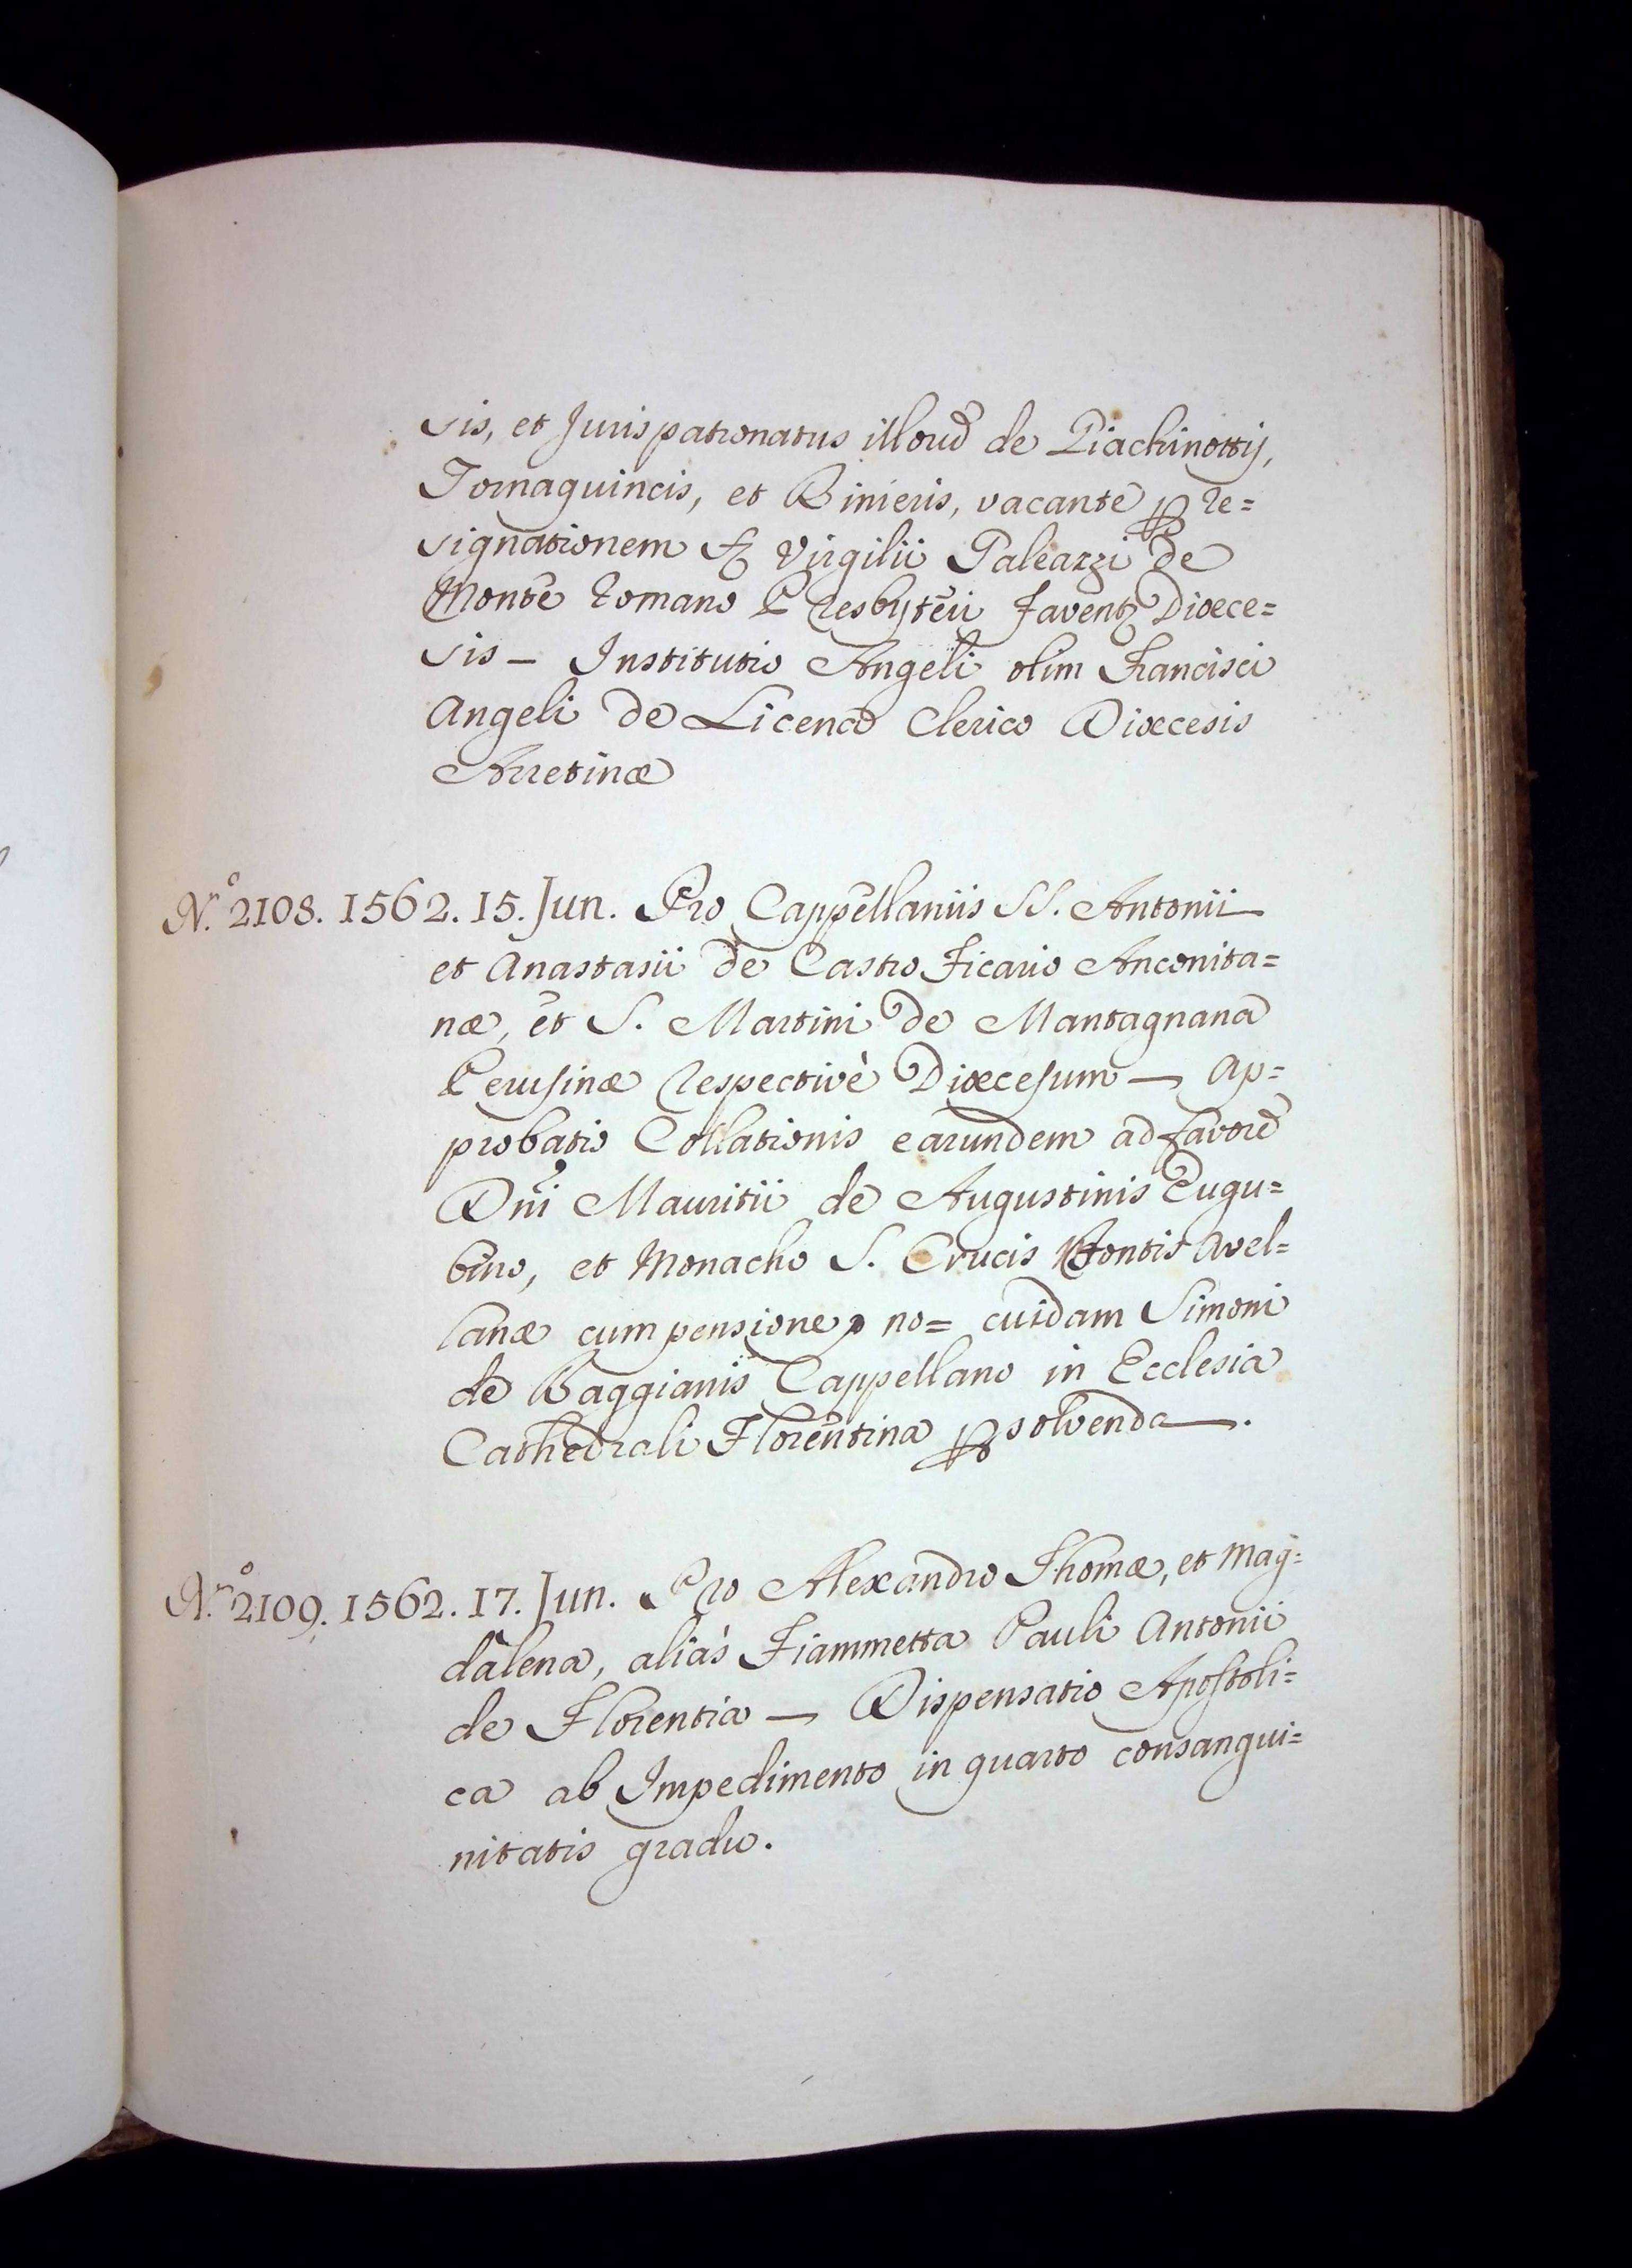 sis, et Jurispatronatus illoru᷈ de Piachinottij,
Tornaquincis, et Binieris, vacante p re=
signationem Virgilii Palearzi de
Monte Romano Presbyteri Favent Diœce=
sis — Institutio Angeli olim Francisci
Angeli de Licenco Clerico Diœcesis
Arretinæ
N.º 2108. 1562. 15. Jun. Pro Cappellaniis SS. Antonii
et Anastasii de Castro Ficario Anconita=
næ, et S. Martini de Mantagnana
Perusinæ respectivè Diœcesum — Ap=
probatio Collationis earundem ad favorē
Dñi Mauritii de Augustinis Eugu=
bino, et Monacho S. Crucis Fontis Avel=
lanæ cum pensione no= cuidam Simoni
de Baggianis Cappellano in Ecclesia
Cathedrali Florentina psolvenda.
N.º 2109. 1562. 17. Jun. Pro Alexandro Thomæ, et Mag=
dalena, aliàs Fiammetta Pauli Antonii
de Florentia — Dispensatio Apostoli=
ca ab Impedimento in quarto consangui=
nitatis gradu.